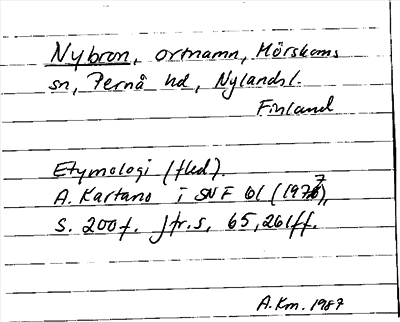 Nybron, ortnamn, Mörskoms
sn, Pernå hd, Nylands l.
Finland
Etymologi (fled).
A. Kartano i SNF 61 (1977),
s. 200 f. Jfr. s. 65, 261 ff.
A. Km. 1987